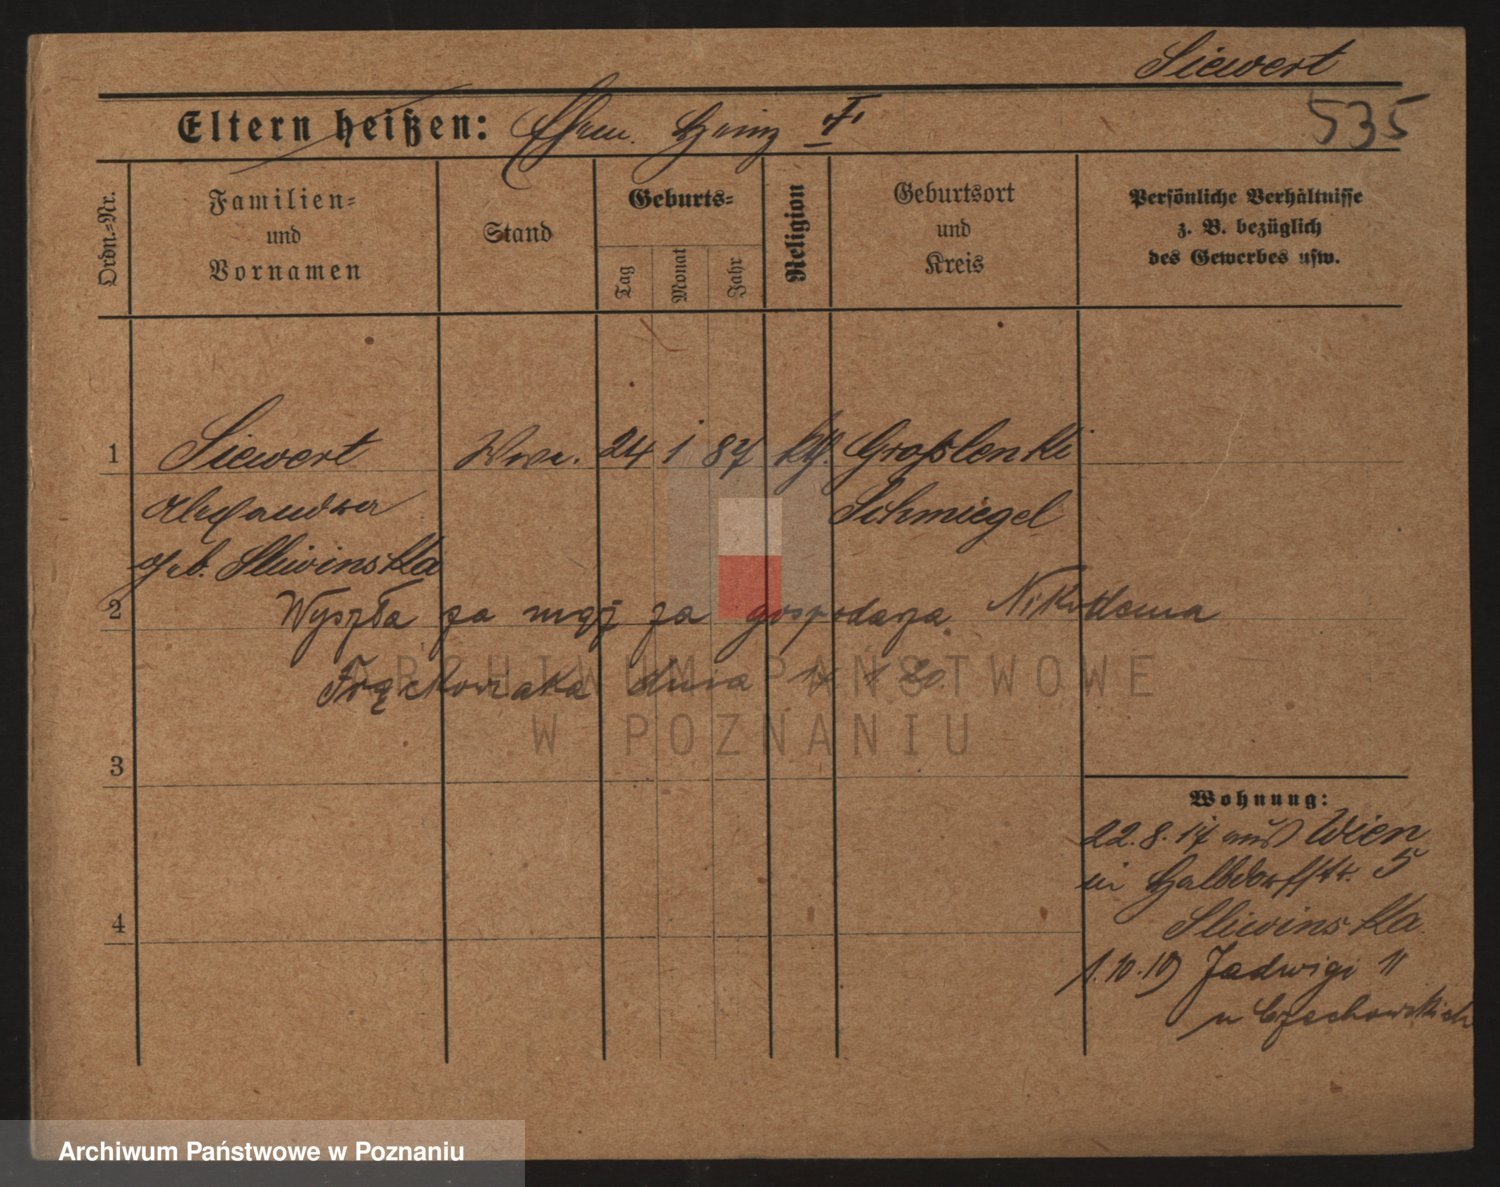 Siewert
535
Eltern heißen: Ehem. Heinz †
Ordn.-Nr.
Familien-
und
Vornamen
Stand
Geburts-
Tag
Monat
Jahr
Religion
Geburtsort
und
Kreis
Persönliche Verhältnisse
z. B. bezüglich
des Gewerbes usw.
1 Siewert Wwe. 24 1 87 kth. Großlenki
Alexandra Schmiegel
geb. Sliwinska
2 Wyszła za mąż za gospodarza Nikodema
Frąckowiaka dnia
ARCHIWUM PAŃSTWOWE
W POZNANIU
3
4
Wohnung:
22.8.17 aus Wien
in Halbdorfstr. 5
Sliwinska
1.10.19 Jadwigi 11
u Czechowskich
Archiwum Państwowe w Poznaniu